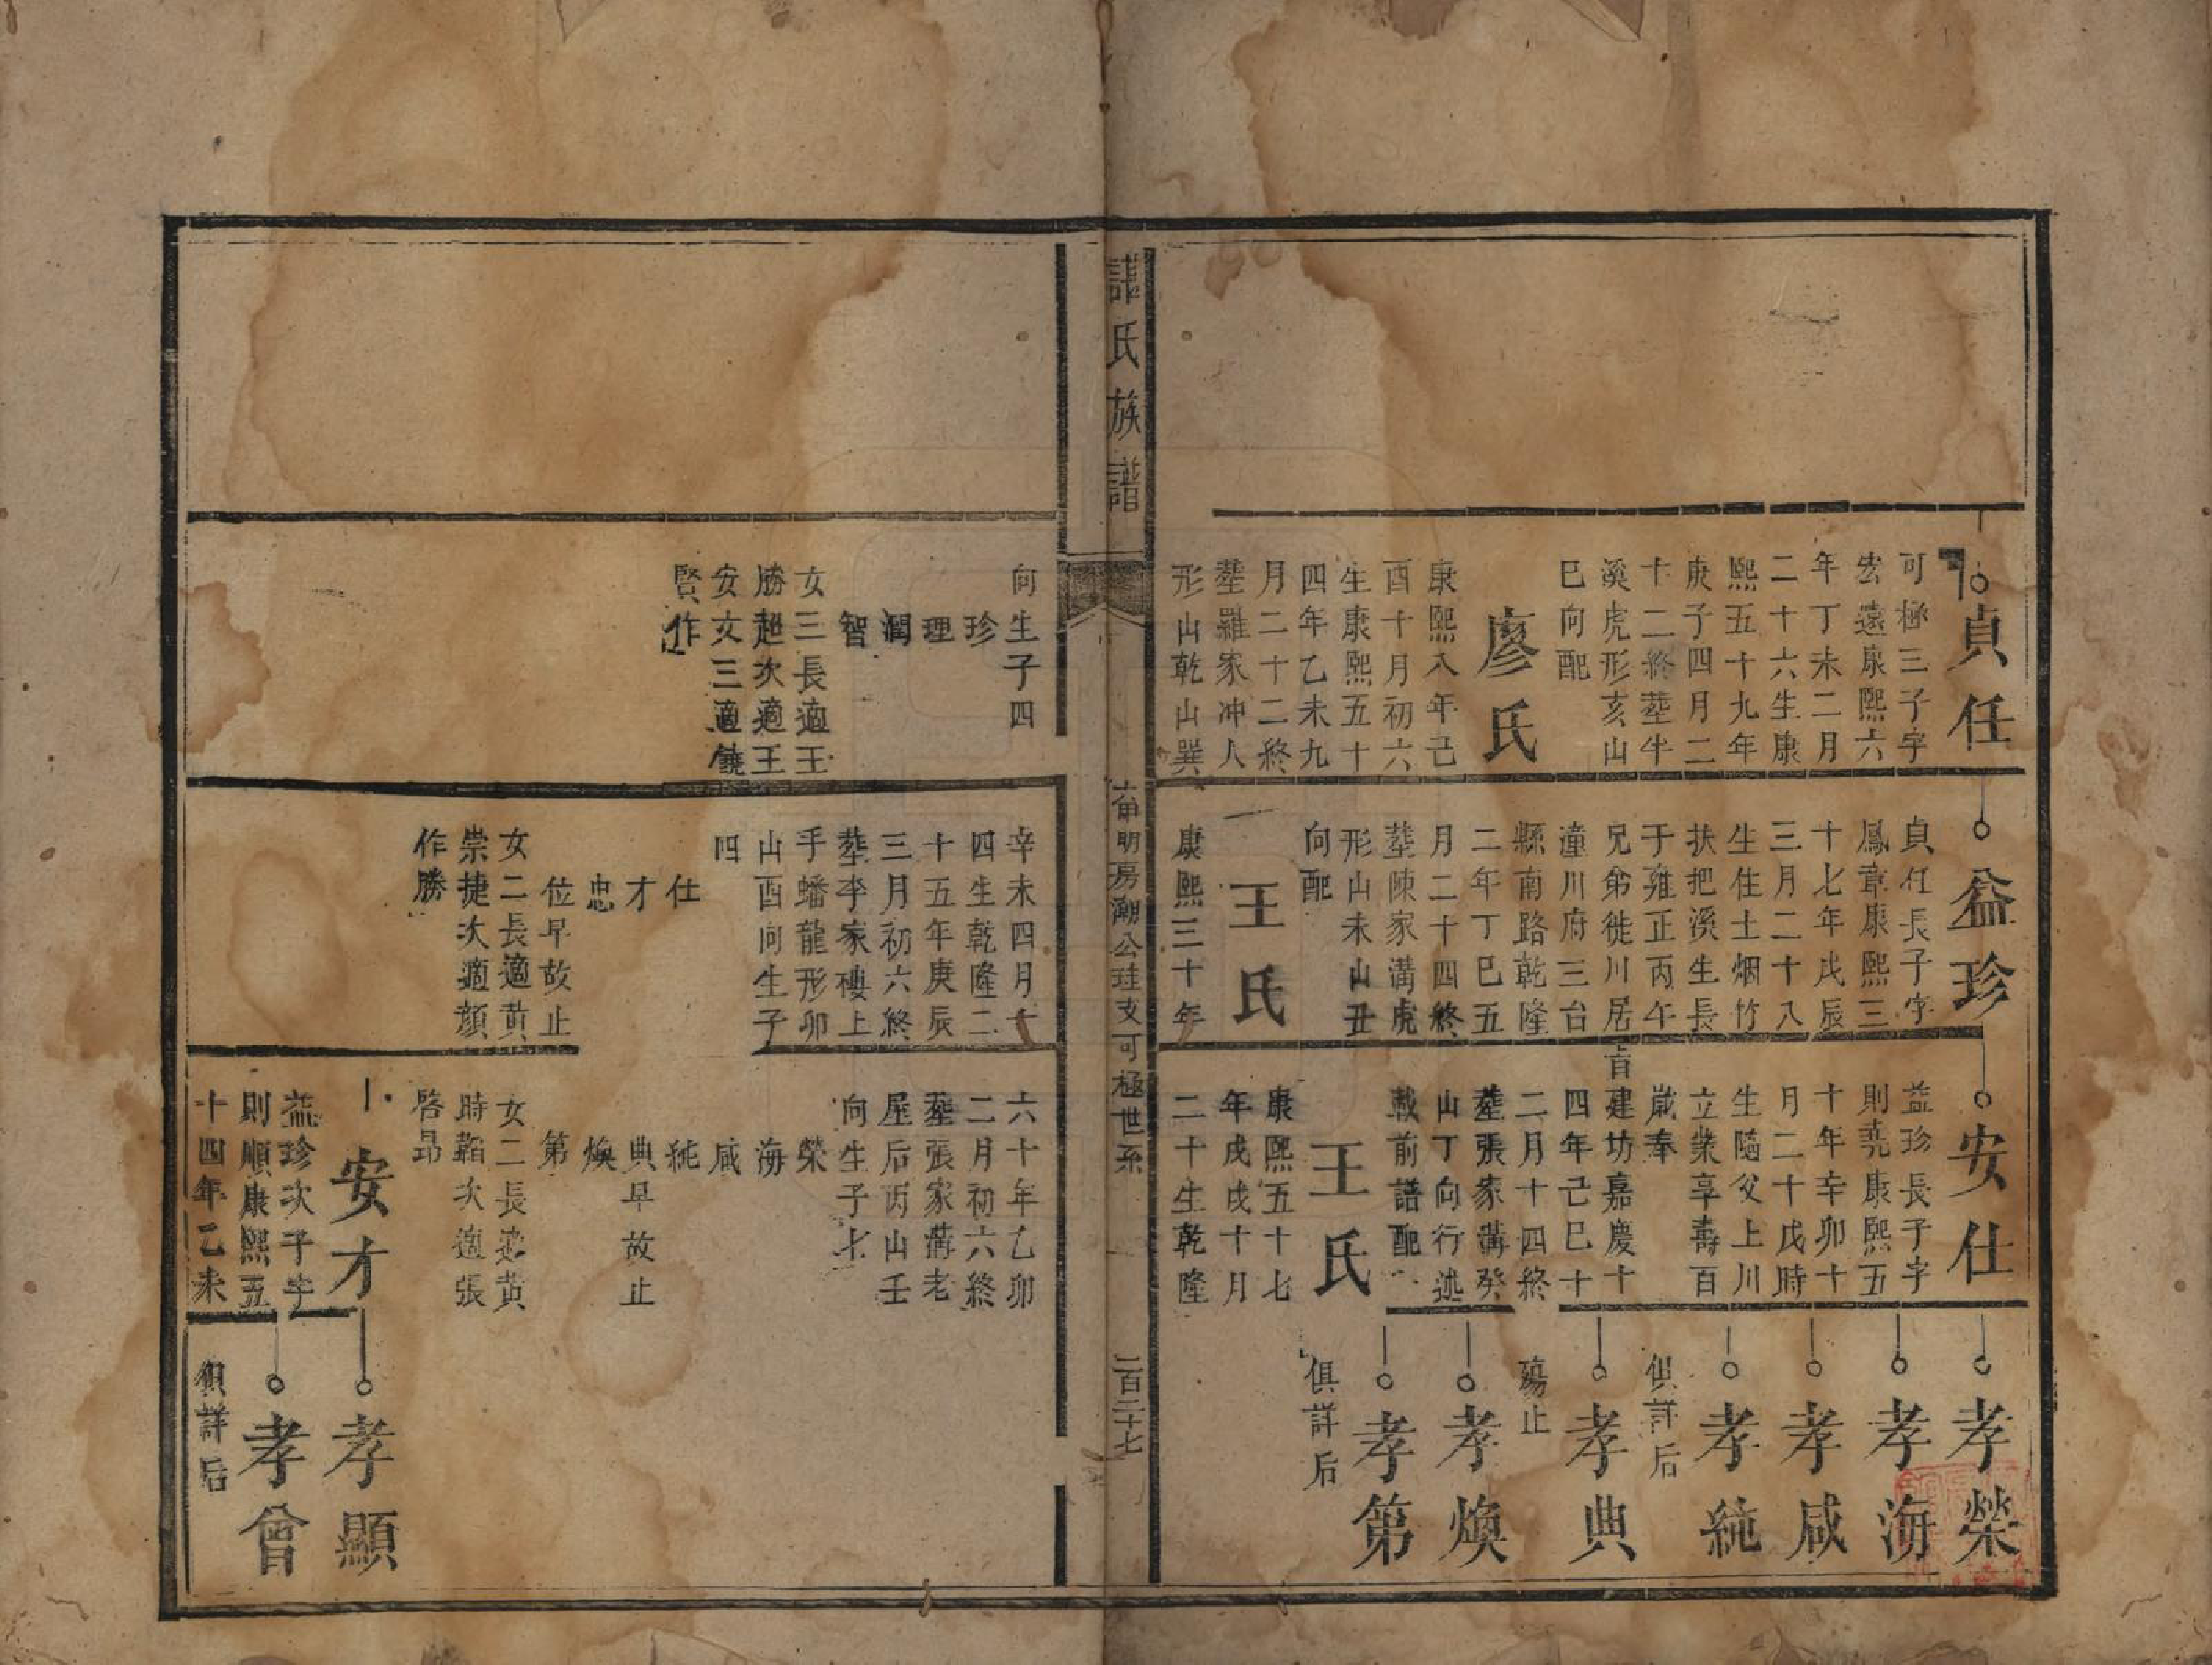 貞任
可極三子字
宏遠康熙六
年丁未二月
二十六生康
熙五十九年
庚子四月二
十二終塟牛
溪虎形亥山
巳向配
廖氏
康熙八年己
酉十月初六
生康熙五十
四年乙未九
月二十二終
塟羅家冲人
形山乾山巽
向生子四
珍
理
潤
智
女三長適王
勝超次適王
安文三適饒
賢作
益珍
貞任長子字
鳳章康熙三
十七年戊辰
三月二十八
生住土烟竹
扶把溪生長
于雍正丙午
兄弟徙川居
潼川府三台
縣南路乾隆
二年丁巳五
月二十四終
塟陳家溝虎
形山未山丑
向配
王氏
康熙三十年
辛未四月十
四生乾隆二
十五年庚辰
三月初六終
塟李家樓上
手蟠龍形卯
山酉向生子
四
仕
才
忠
位早故止
女二長適黄
崇捷次適顔
作勝
安仕
益珍長子字
則堯康熙五
十年辛卯十
月二十戊時
生隨父上川
立業享壽百
嵗奉
旨建坊嘉慶十
四年己巳十
二月十四終
塟張家溝癸
山丁向行述
載前譜配
王氏
康熙五十七
年戊戌十月
二十生乾隆
六十年乙卯
二月初六終
塟張家溝老
屋后丙山壬
向生子七
榮
海
咸
純
典早故止
煥
第
女二長適黄
時韜次適張
啓昂
安才
益珍次子字
則順康熙五
十四年乙未
孝榮
孝海
孝咸
孝純
俱詳后
孝典
殤止
孝煥
孝第
俱詳后
孝顯
孝曾
俱詳后
譚氏族譜
明房潮公珪支可極世系
二百二十七